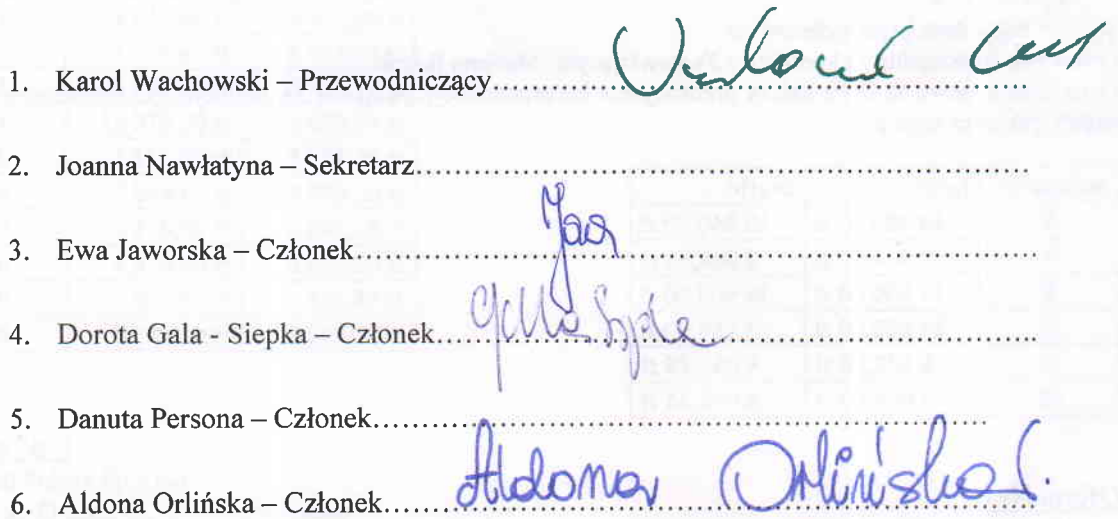 1. Karol Wachowski – Przewodniczący
2. Joanna Nawłatyna – Sekretarz
3. Ewa Jaworska – Członek
4. Dorota Gala - Siepka – Członek
5. Danuta Persona – Członek
6. Aldona Orlińska – Członek Aldona Orlińska